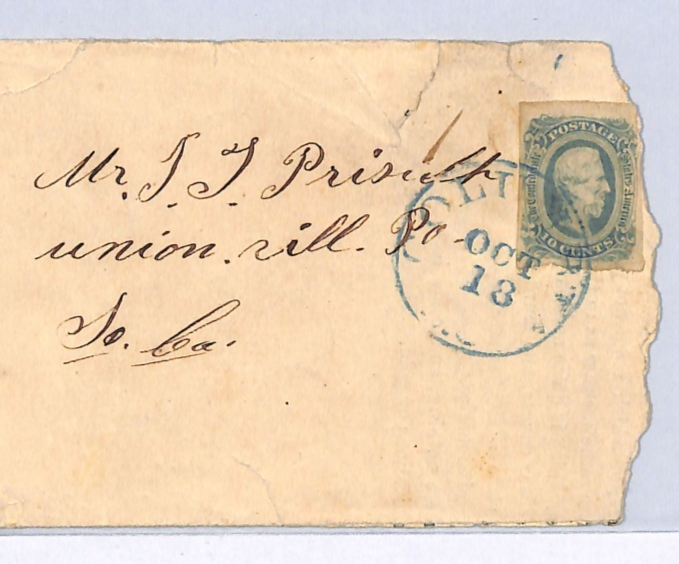 Mr. J. J. Prisult
union. vill. Po
So. Ca.
OCT
13
POSTAGE
The Confederate States of America
10 CENTS